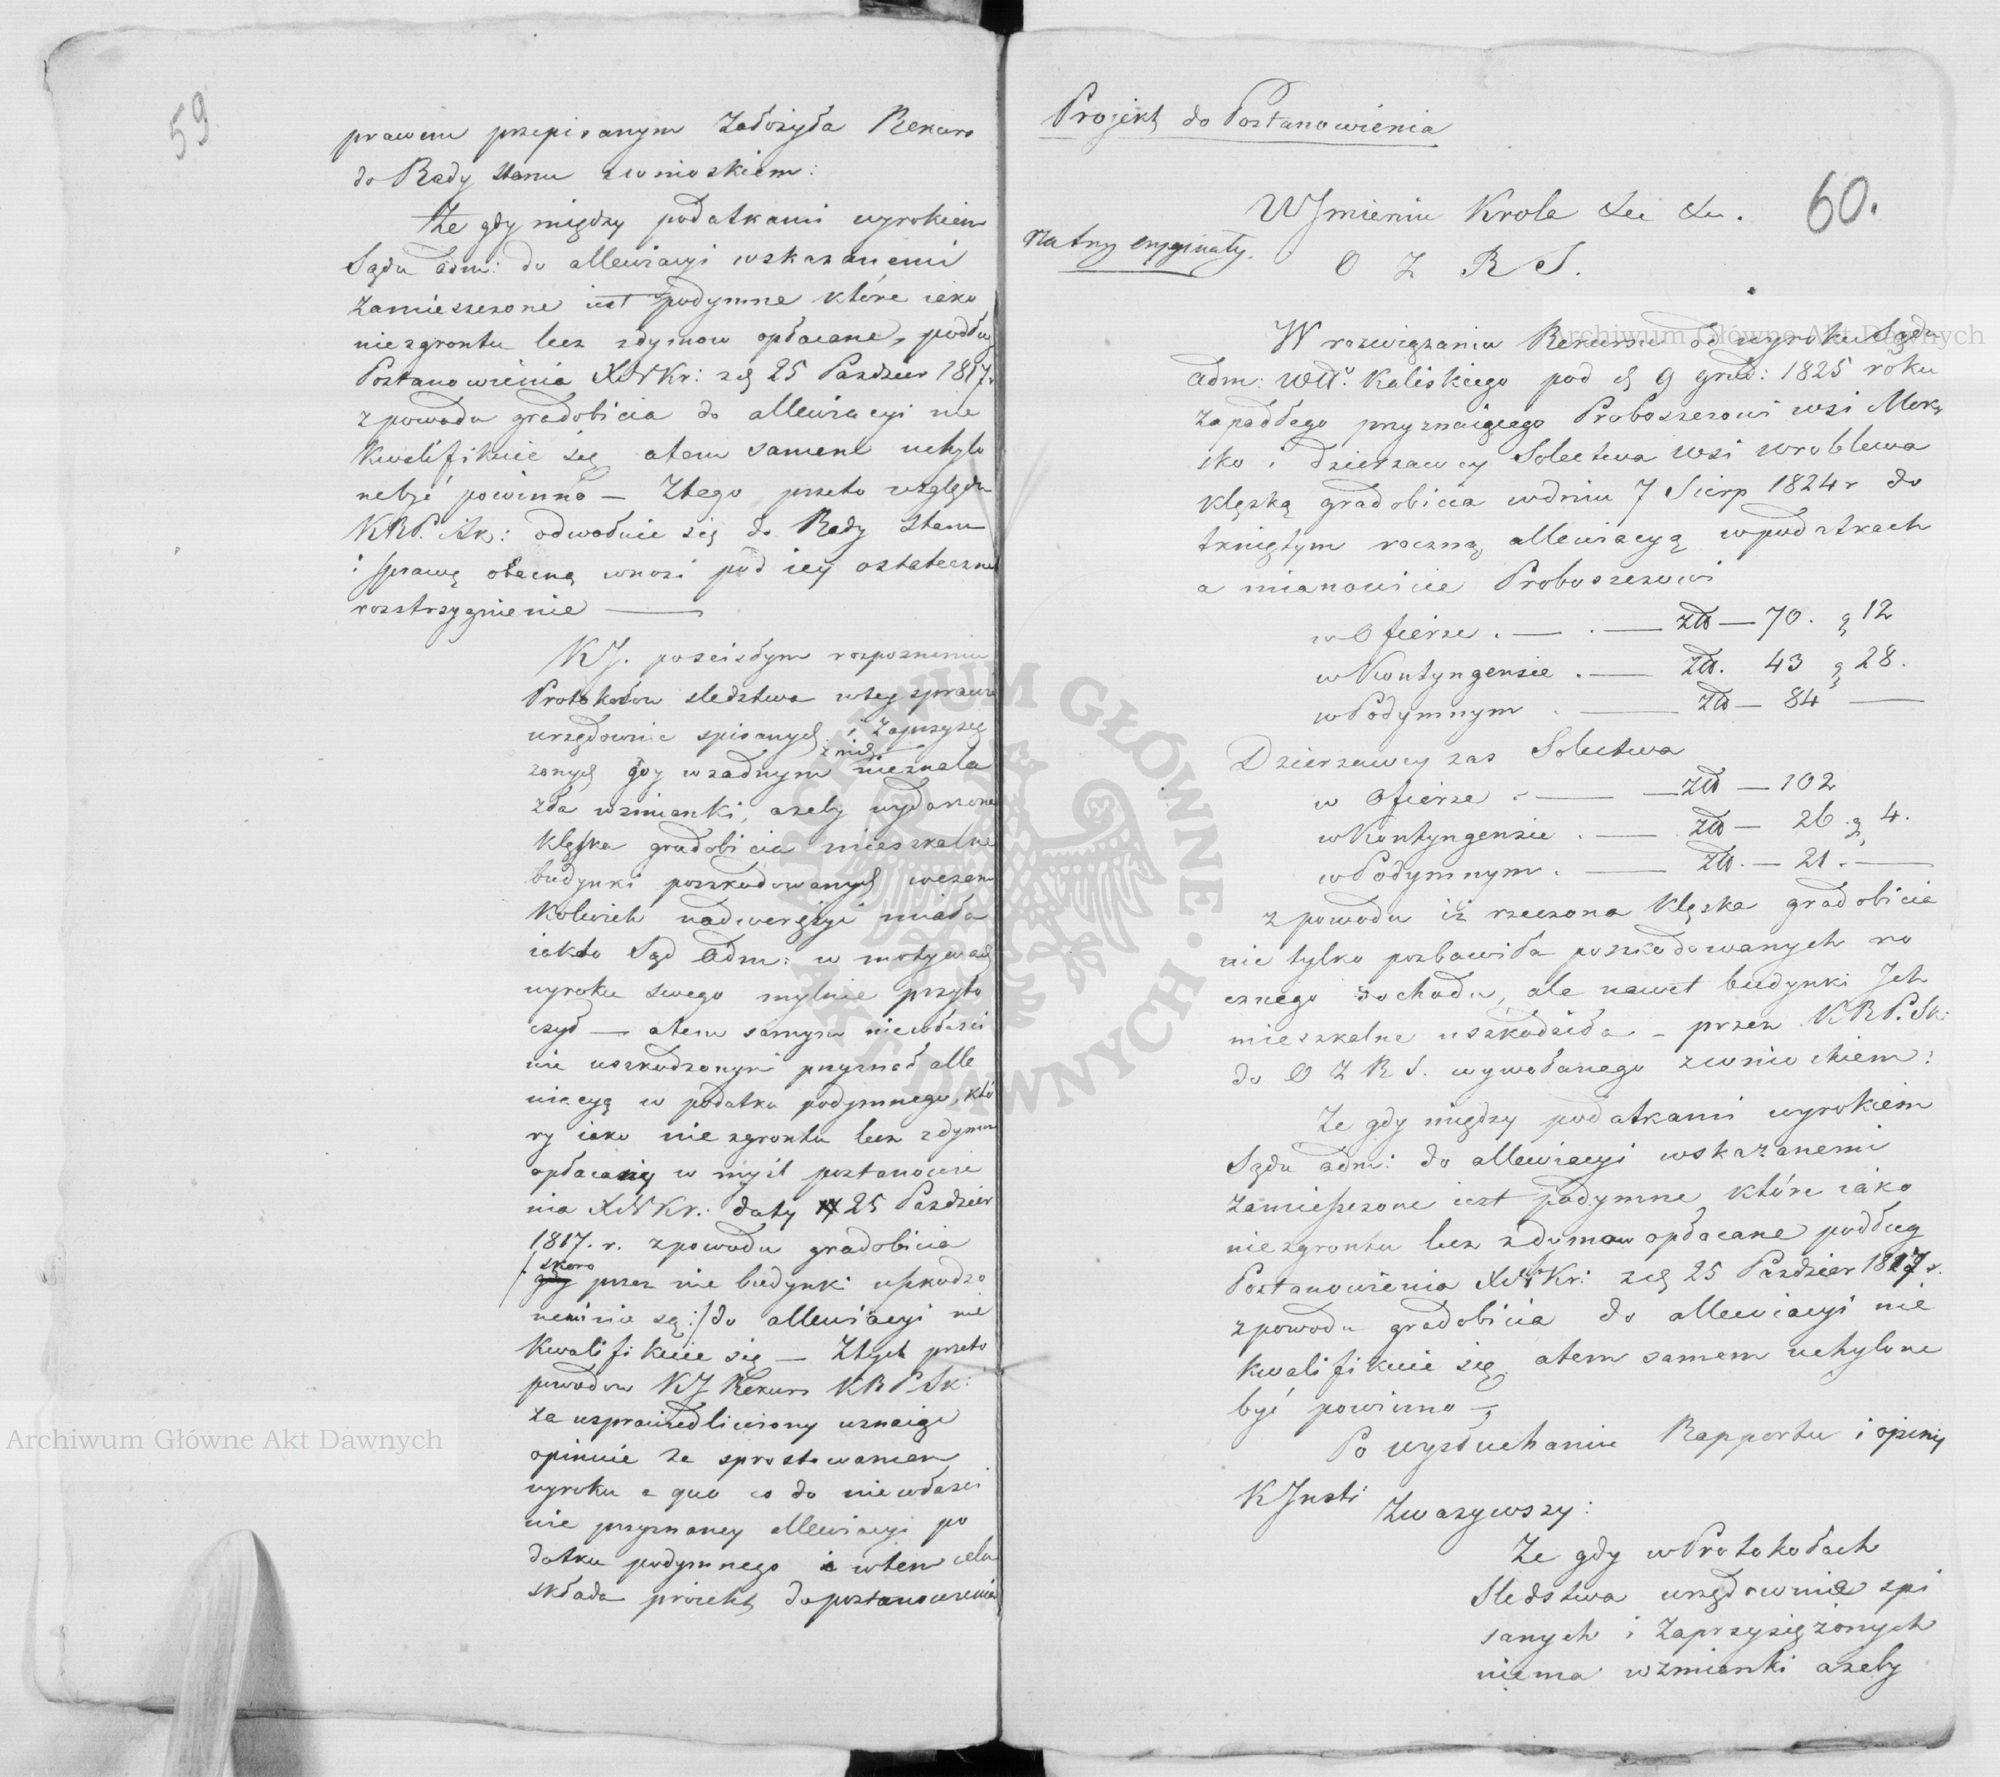 59
prawem przepisanym założyła Rekurs
do Rady Stanu z wnioskiem:
Ze gdy między podatkami wyrokiem
Sądu adm: do allewiacyi wskazanemi
zamieszczone iest podymne które iako
niezgrontu lecz zdymow opłacane, podług
Postanowienia XNKr: z d 25 Pazdzier 1817 r
zpowodu gradobicia do allewiacyi nie
kwalifikuie się atem samem uchylo
ne bydź powinno — Ztego przeto względu
KRP. Sk: odwołuie się do Rady Stanu
i sprawę obecną wnosi pod iey ostateczne
rozstrzygnienie —
KJ. po scisłym rozpoznaniu
Protokołow sledztwa wtey sprawie
urzędownie spisanych i zaprzysię
żonych gdy w zadnym z nich nieznala
zła wzmianki, azeby wydarzona
klęska gradobicia mieszkalne
budynki poszkodowanych wczem
kolwiek nadweręzyć miała
iak to Sąd Adm: w motywach
wyroku swego mylnie przyto
czył — atem samym niewłaści
nie uszkodzonym przyznał alle
wiacyą w podatku podymnego, któ
ry iako nie zgrontu lecz zdymow
opłacany w myśl postanowie
nia XNKr: daty 25 Pazdzier
1817. r. zpowodu gradobicia
/: skoro przez nie budynki uszkodzo
nemi nie są :/ do allewiacyi nie
kwalifikuie się — Ztych przeto
powodow KJ Rekurs KRPSk:
za usprawiedliwiony uznaiąc
opiniuie za sprostowaniem
wyroku a quo co do niewłaści
nie przyznaney allewiacyi po
datku podymnego i wtem celu
składa proiekt do postanowienia
Projekt do Postanowienia
60.
W Jmieniu Krola &c &c.
na trzy oryginały.
O Z R S.
W rozwiązaniu Rekursu od wyroku Sądu
Adm: Wdt. Kaliskiego pod d 9 grud: 1825 roku
zapadłego przyznaiącego Proboszczowi wsi Mok
sko i dzierzawcy Solectwa wsi Wroblewa
klęską gradobicia wdniu 7 Sierp 1824 r do
tkniętym roczną allewiacyą wpodatkach
a mianowicie Proboszczowi
w Ofierze . — . — zł — 70. g 12
w Kontyngensie . — zł. 43 g 28.
w Podymnym . — zł — 84 —
Dzierzawcy zas Solectwa
w Ofierze . — — zł — 102
w Kontyngensie . — zł — 26. g 4.
w Podymnym . — zł. — 21. —
z powodu iz rzeczona klęska gradobicia
nie tylko pozbawiła poszkodowanych ro
cznego dochodu, ale nawet budynki Jch
mieszkalne uszkodziła — przez KRP.Sk:
do O Z R S. wywołanego zwnioskiem:
Ze gdy między podatkami wyrokiem
Sądu adm: do allewiacyi wskazanemi
zamieszczone iest podymne które iako
niezgrontu lecz zdymow opłacane podług
Postanowienia XNKr: z d 25 Pazdzier 1817 r.
zpowodu gradobicia do allewiacyi nie
kwalifikuie się, atem samem uchylone
być powinno —
Po wysłuchaniu Rapportu i opinii
KJnsti
Zwazywszy:
Ze gdy wProtokołach
Sledstwa urzędownie spi
sanych i zaprzysiężonych
niema wzmianki azeby
Archiwum Główne Akt Dawnych
Archiwum Główne Akt Dawnych
ARCHIWUM GŁÓWNE · AKT DAWNYCH ·